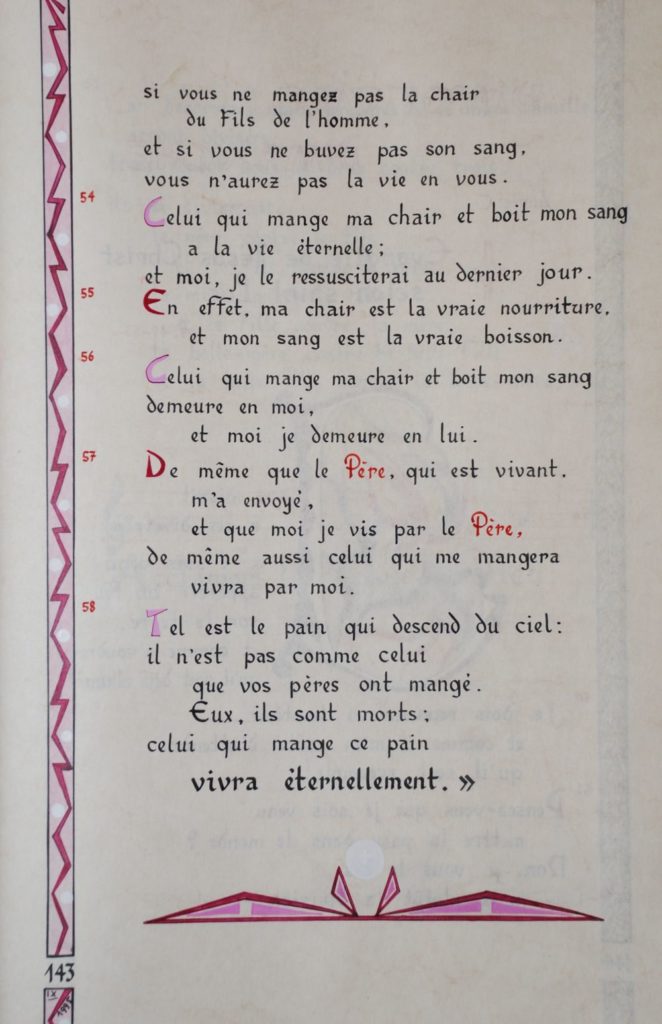 si vous ne mangez pas la chair
du Fils de l'homme,
et si vous ne buvez pas son sang,
vous n'aurez pas la vie en vous.
54
Celui qui mange ma chair et boit mon sang
a la vie éternelle ;
et moi, je le ressusciterai au dernier jour.
55
En effet, ma chair est la vraie nourriture,
et mon sang est la vraie boisson.
56
Celui qui mange ma chair et boit mon sang
demeure en moi,
et moi je demeure en lui.
57
De même que le Père, qui est vivant,
m'a envoyé,
et que moi je vis par le Père,
de même aussi celui qui me mangera
vivra par moi.
58
Tel est le pain qui descend du ciel :
il n'est pas comme celui
que vos pères ont mangé.
Eux, ils sont morts ;
celui qui mange ce pain
vivra éternellement. »
143
IX